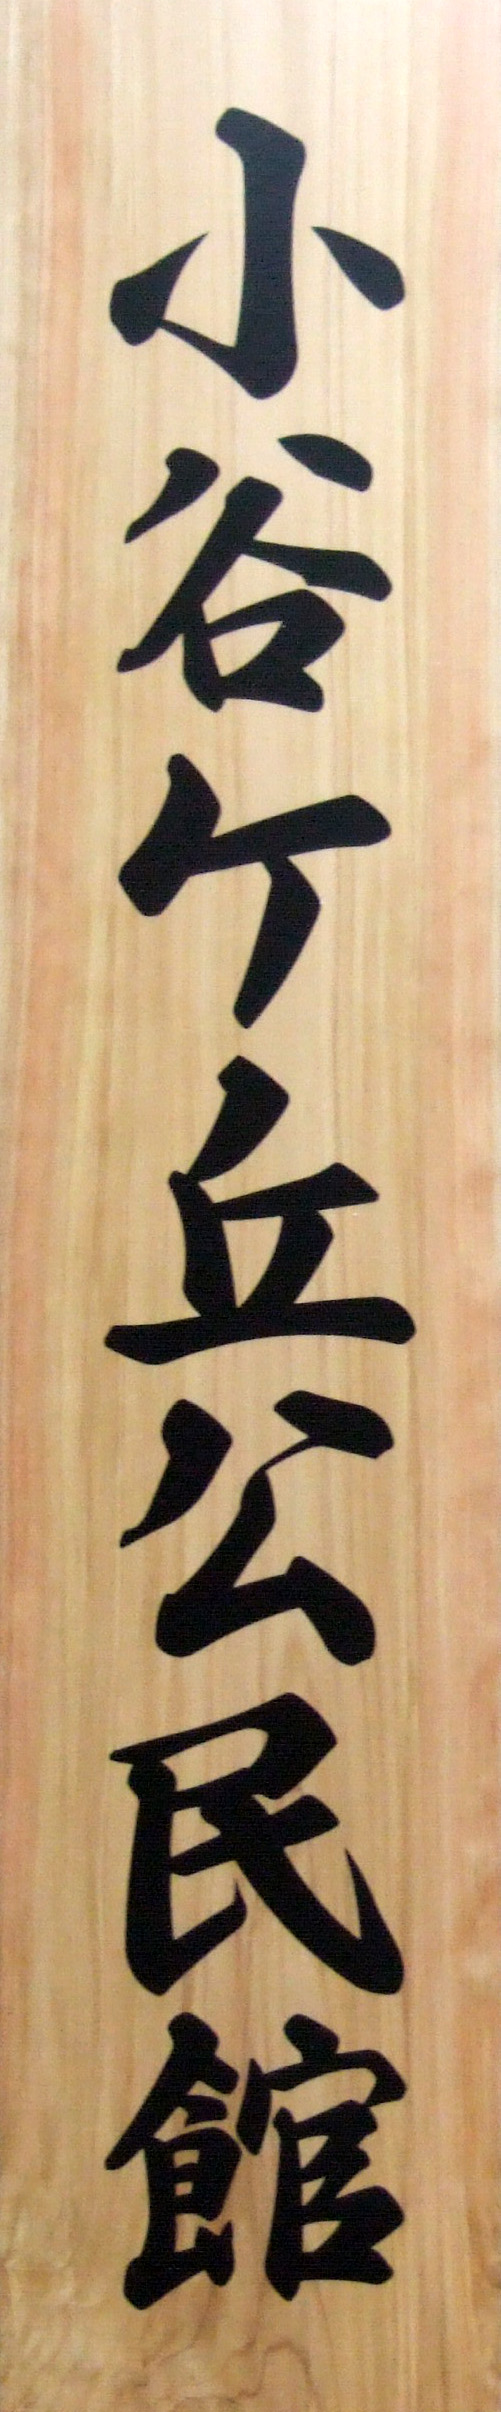 小谷ケ丘公民館